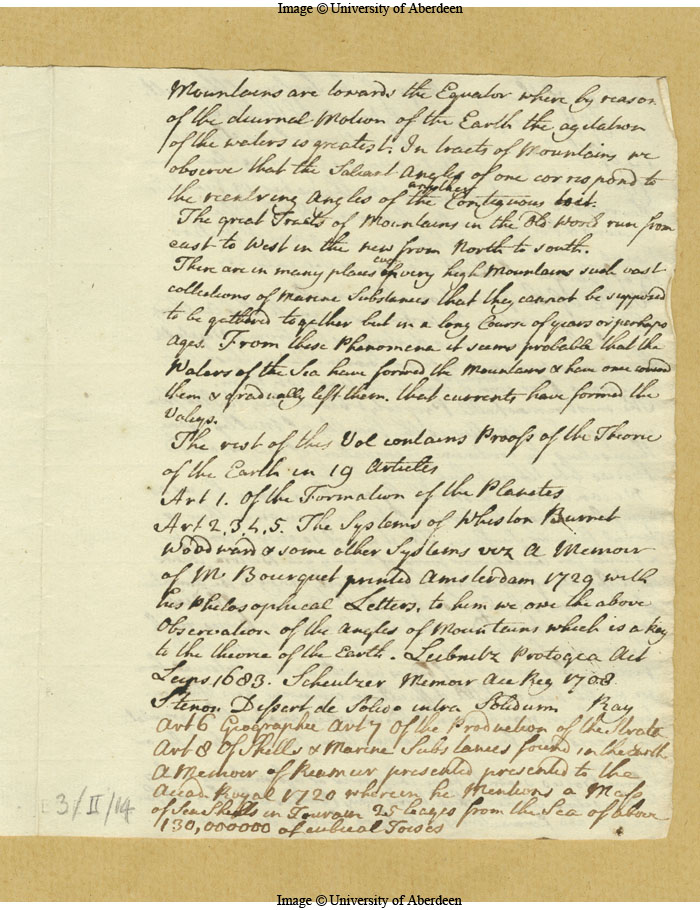 Image © University of Aberdeen
Mountains are towards the Equator where by reason
of the diurnal Motion of the Earth the agitation
of the waters is greatest. In tracts of Mountains we
observe that the Saliant Angles of one correspond to
the reentring Angles of the Contiguous
another
The great Tracts of Mountains in the Old World run from
east to West in the new from North to south.
There are in many places even
in very high Mountains such vast
collections of Marine Substances that they cannot be supposed
to be gathered together but in a long Course of years or perhaps
ages. From these Phenomena it seems probable that the
Waters of the Sea have formed the Mountains & have once covered
them & gradually left them. that currents have formed the
Valeys.
The rest of this Vol contains Proofs of the Theorie
of the Earth in 19 Articles
Art 1. Of the Formation of the Planetes
Art 2, 3 4, 5. The Systems of Whiston Burnet
Woodward & some other Systems viz A Memoir
of Mr Bourguet printed Amsterdam 1729 with
his Philosophical Letters, to him we owe the above
Observation of the Angles of Mountains which is a key
to the theorie of the Earth. Leibnitz Protogea Act
Leips 1683. Scheutzer Memoir Acc Reg 1708
Stenon Dissert de Solido intra Solidum Ray
Art 6 Geographie Art 7 Of the Production of the Strata
Art 8 Of Shells & Marine Substances found in the Earth
A Memoir of Reamur presented presented to the
Acad Royal 1720 wherein he Mentions a Mass
of Sea Shells in Tourain 25 leages from the Sea of above
130,000000 of cubical Toises
3/II/14
Image © University of Aberdeen